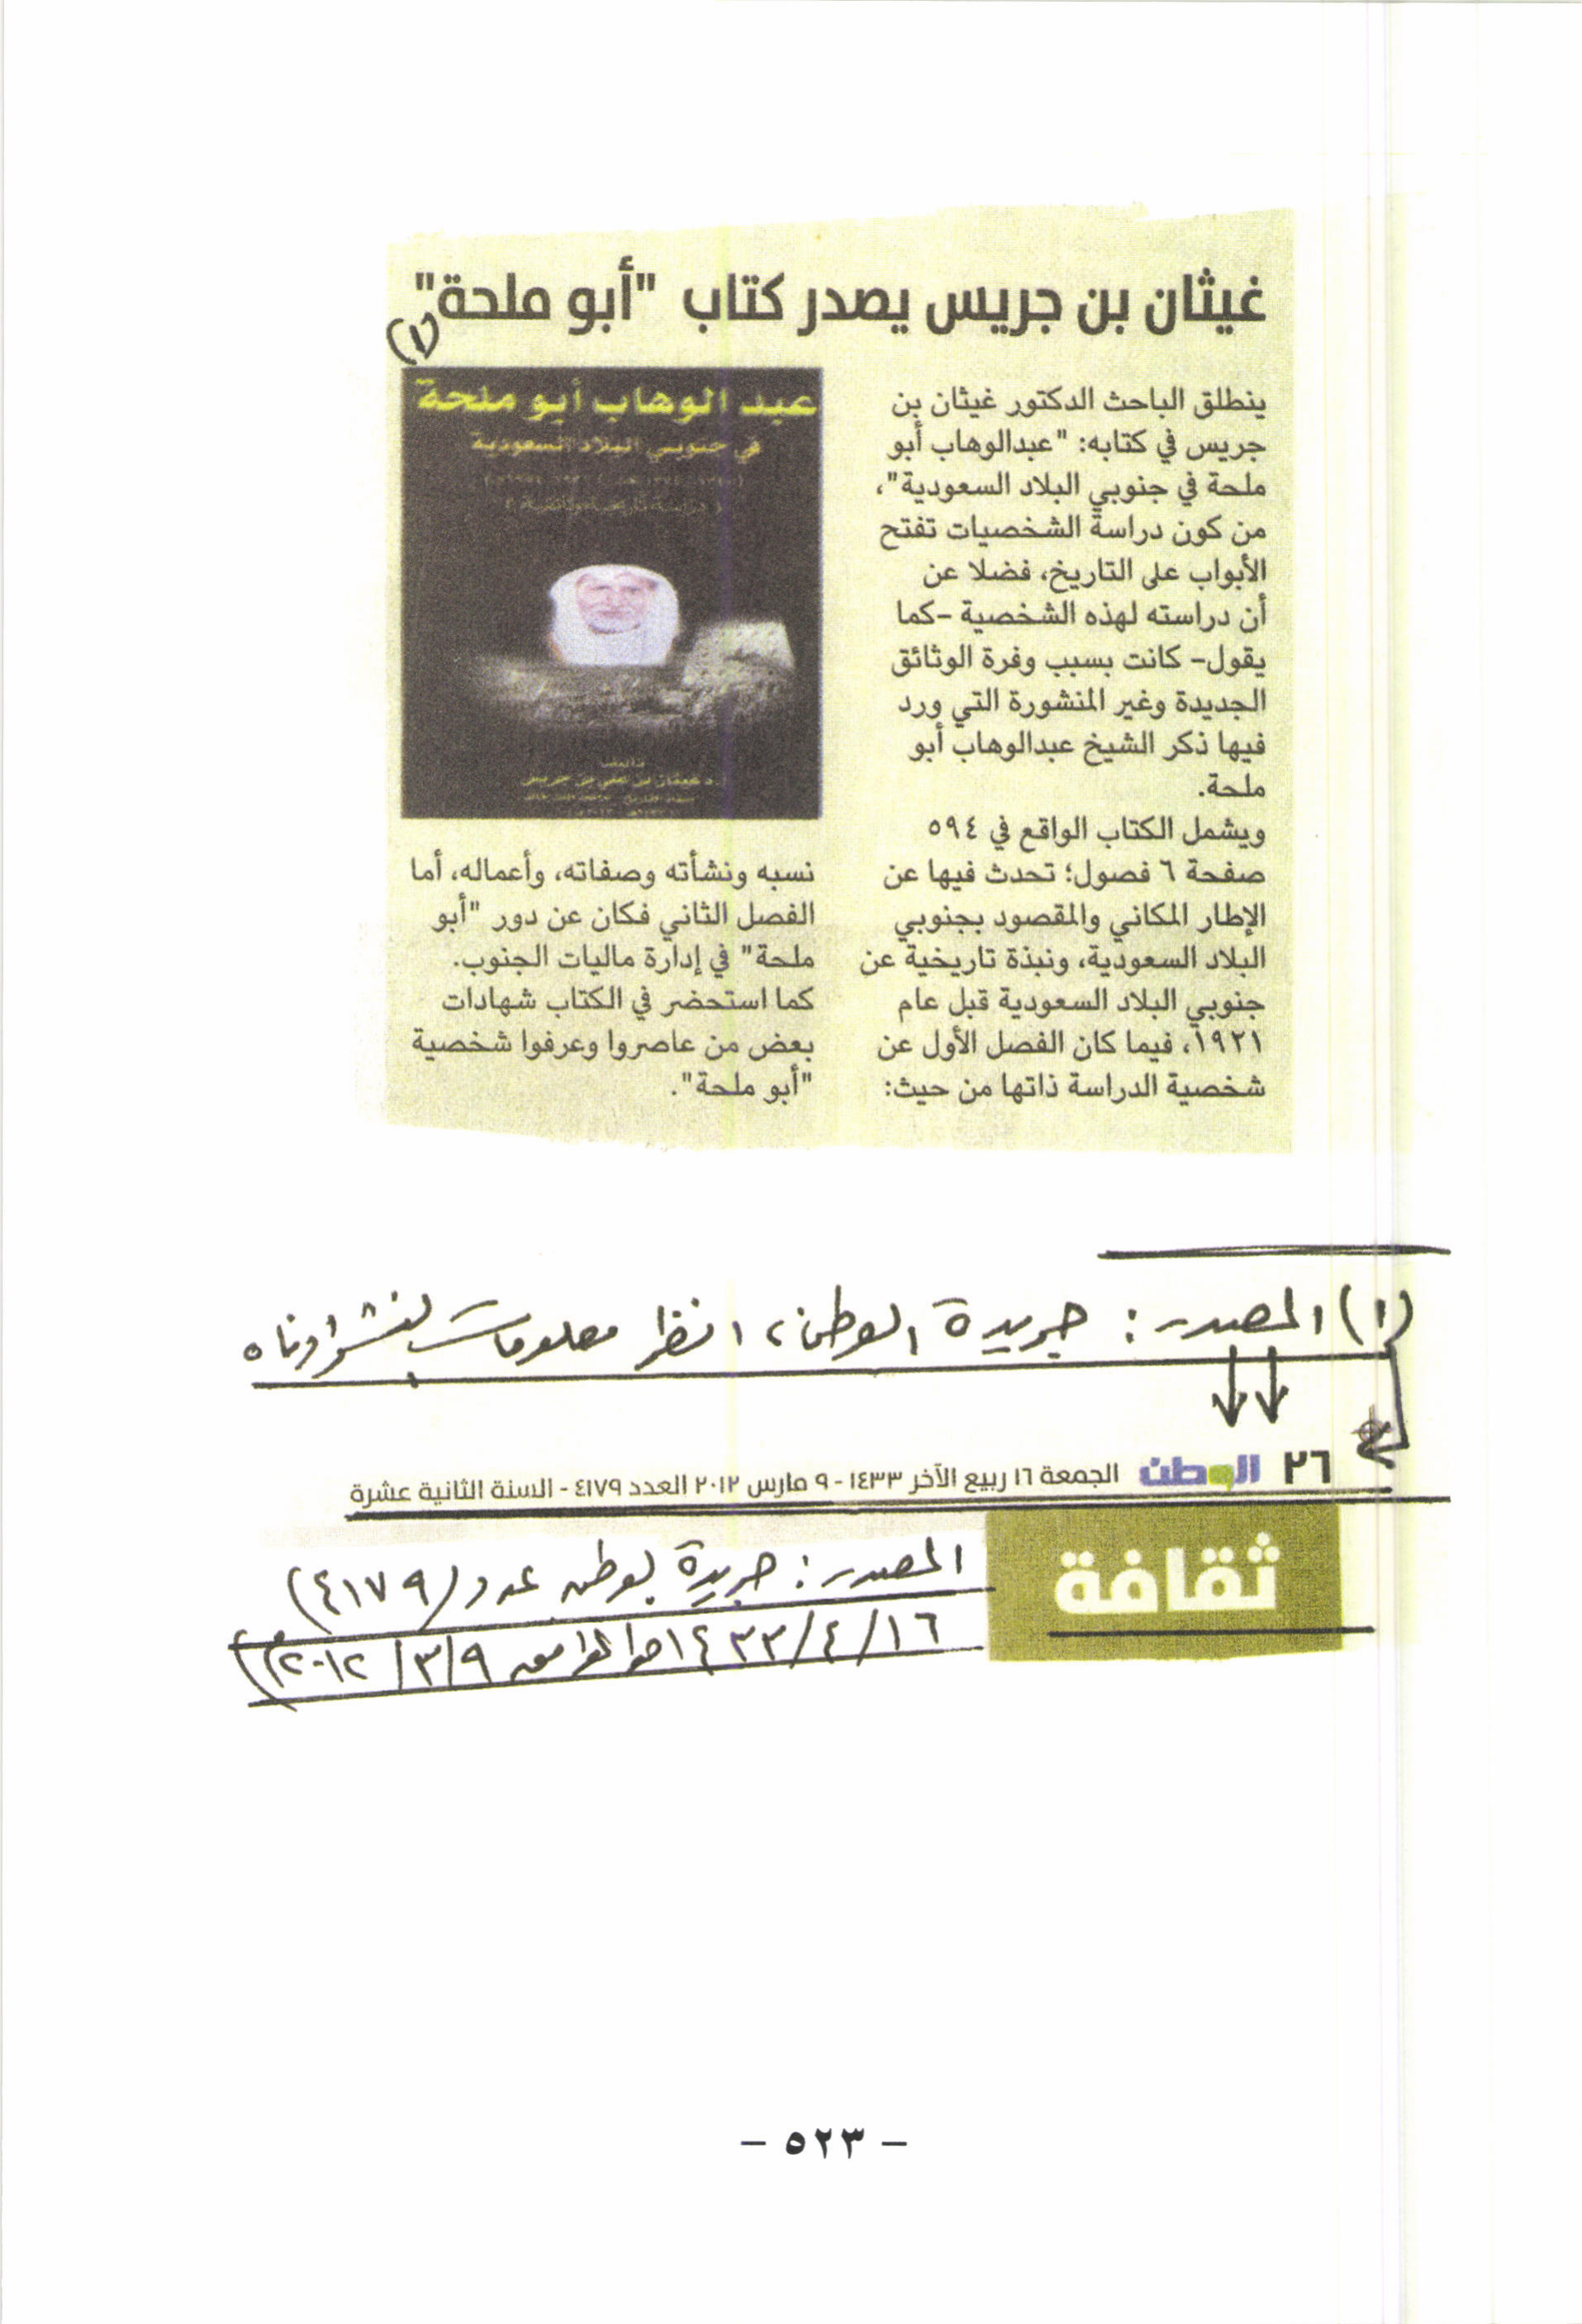 غيثان بن جريس يصدر كتاب "أبو ملحة"
(١)
ينطلق الباحث الدكتور غيثان بن
جريس في كتابه: "عبدالوهاب أبو
ملحة في جنوبي البلاد السعودية"،
من كون دراسة الشخصيات تفتح
الأبواب على التاريخ، فضلا عن
أن دراسته لهذه الشخصية -كما
يقول- كانت بسبب وفرة الوثائق
الجديدة وغير المنشورة التي ورد
فيها ذكر الشيخ عبدالوهاب أبو
ملحة.
ويشمل الكتاب الواقع في ٥٩٤
صفحة ٦ فصول؛ تحدث فيها عن
الإطار المكاني والمقصود بجنوبي
البلاد السعودية، ونبذة تاريخية عن
جنوبي البلاد السعودية قبل عام
١٩٢١، فيما كان الفصل الأول عن
شخصية الدراسة ذاتها من حيث:
عبد الوهاب أبو ملحة
في جنوبي البلاد السعودية
نسبه ونشأته وصفاته، وأعماله، أما
الفصل الثاني فكان عن دور "أبو
ملحة" في إدارة ماليات الجنوب.
كما استحضر في الكتاب شهادات
بعض من عاصروا وعرفوا شخصية
"أبو ملحة".
(١) المصدر: جريدة الوطن، انظر معلومات النشر ادناه
٢٦ الوطن الجمعة ١٦ ربيع الآخر ١٤٣٣ - ٩ مارس ٢٠١٢ العدد ٤١٧٩ - السنة الثانية عشرة
ثقافة
المصدر: جريدة الوطن عدد (٤١٧٩)
١٦/٤/١٤٣٣هـ الموافق ٩/٣/٢٠١٢م)
- ٥٢٣ -